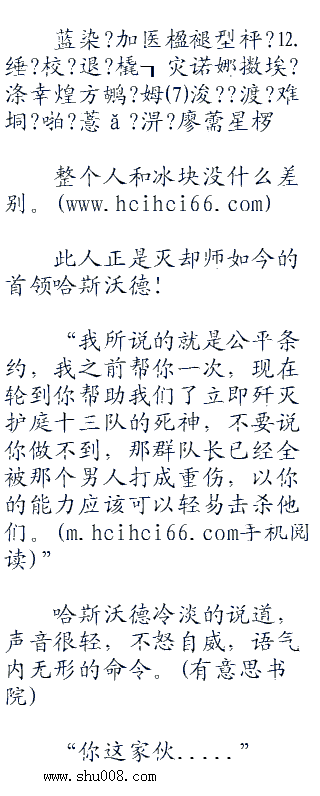 蓝染?加医楹褪型秤?12.
缍?校?退?橇┓ 灾诺娜擞埃?
涤幸煌方鹕?姆(7)浚??渡?难
垌?啪?薏 ǎ?浒?廖薷星椤
整个人和冰块没什么差
别。(www.hcihci66.com)
此人正是灭却师如今的
首领哈斯沃德!
“我所说的就是公平条
约，我之前帮你一次，现在
轮到你帮助我们了立即歼灭
护庭十三队的死神，不要说
你做不到，那群队长已经全
被那个男人打成重伤，以你
的能力应该可以轻易击杀他
们。(m.hcihci66.com手机阅
读)”
哈斯沃德冷淡的说道，
声音很轻，不怒自威，语气
内无形的命令。(有意思书
院)
“你这家伙.....”
www.shu008.com